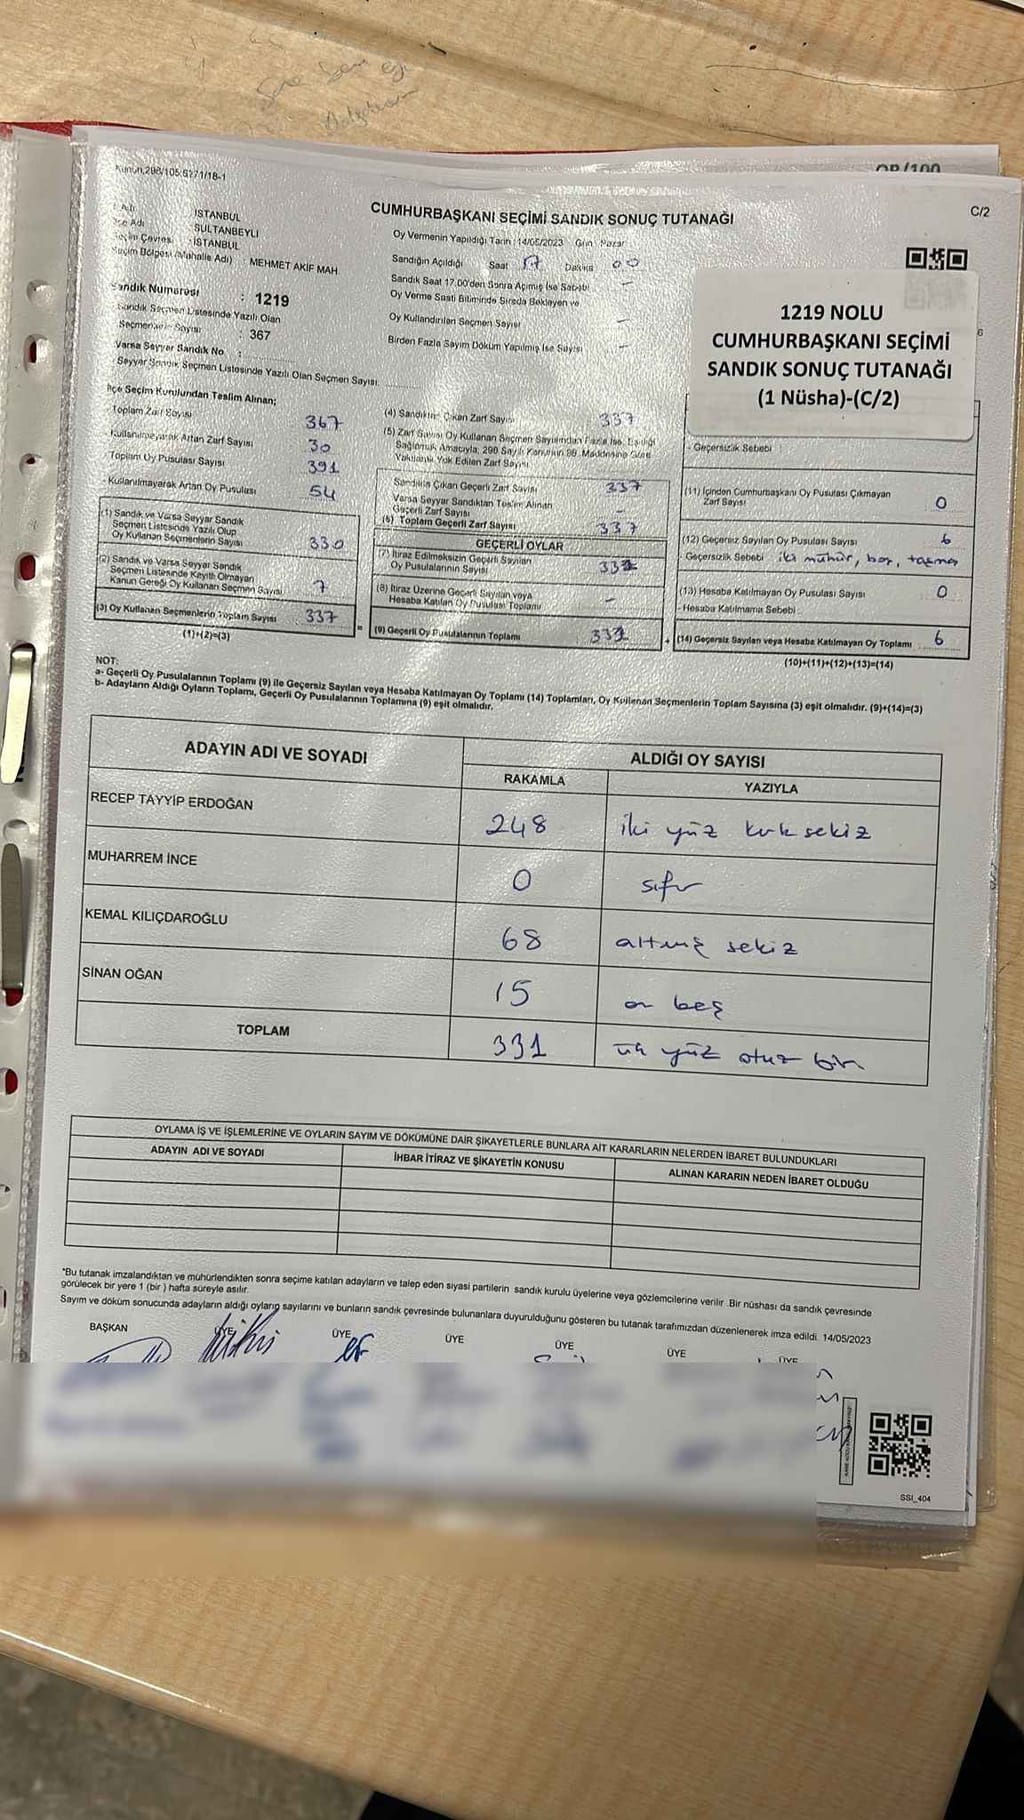 Kanun,298/105,S271/18-1
OP/100
C/2
CUMHURBAŞKANI SEÇİMİ SANDIK SONUÇ TUTANAĞI
İSTANBUL
SULTANBEYLİ
Seçim Çevresi : İSTANBUL
Seçim Bölgesi (Mahalle Adı) : MEHMET AKİF MAH
Sandık Numarası : 1219
Sandık Seçmen Listesinde Yazılı Olan
Seçmenlerin Sayısı : 367
Varsa Seyyar Sandık No :
Seyyar Sandık Seçmen Listesinde Yazılı Olan Seçmen Sayısı
Oy Vermenin Yapıldığı Tarih : 14/05/2023 Gün : Pazar
Sandığın Açıldığı Saat 17 Dakika 00
Sandık Saat 17.00'den Sonra Açılmış İse Sebebi –
Oy Verme Saati Bitiminde Sırada Bekleyen ve
Oy Kullandırılan Seçmen Sayısı –
Birden Fazla Sayım Döküm Yapılmış İse Sayısı –
1219 NOLU
CUMHURBAŞKANI SEÇİMİ
SANDIK SONUÇ TUTANAĞI
(1 Nüsha)-(C/2)
İlçe Seçim Kurulundan Teslim Alınan;
Toplam Zarf Sayısı 367
Kullanılmayarak Artan Zarf Sayısı 30
Toplam Oy Pusulası Sayısı 391
Kullanılmayarak Artan Oy Pusulası 54
(1) Sandık ve Varsa Seyyar Sandık
Seçmen Listesinde Yazılı Olup
Oy Kullanan Seçmenlerin Sayısı 330
(2) Sandık ve Varsa Seyyar Sandık
Seçmen Listesinde Kayıtlı Olmayan
Kanun Gereği Oy Kullanan Seçmen Sayısı 7
(3) Oy Kullanan Seçmenlerin Toplam Sayısı 337
(1)+(2)=(3)
(4) Sandıktan Çıkan Zarf Sayısı 337
(5) Zarf Sayısı Oy Kullanan Seçmen Sayısından Fazla İse, Eşitliği
Sağlamak Amacıyla, 298 Sayılı Kanunun 98. Maddesine Göre
Yakılarak Yok Edilen Zarf Sayısı –
Sandıkta Çıkan Geçerli Zarf Sayısı 337
Varsa Seyyar Sandıktan Teslim Alınan
Geçerli Zarf Sayısı –
(6) Toplam Geçerli Zarf Sayısı 337
GEÇERLİ OYLAR
(7) İtiraz Edilmeksizin Geçerli Sayılan
Oy Pusulalarının Sayısı 331
(8) İtiraz Üzerine Geçerli Sayılan veya
Hesaba Katılan Oy Pusulası Toplamı –
(9) Geçerli Oy Pusulalarının Toplamı 331
- Geçersizlik Sebebi
(11) İçinden Cumhurbaşkanı Oy Pusulası Çıkmayan
Zarf Sayısı 0
(12) Geçersiz Sayılan Oy Pusulası Sayısı 6
Geçersizlik Sebebi iki mühür, boş, taşma
(13) Hesaba Katılmayan Oy Pusulası Sayısı 0
- Hesaba Katılmama Sebebi
(14) Geçersiz Sayılan veya Hesaba Katılmayan Oy Toplamı 6
(10)+(11)+(12)+(13)=(14)
NOT:
a- Geçerli Oy Pusulalarının Toplamı (9) ile Geçersiz Sayılan veya Hesaba Katılmayan Oy Toplamı (14) Toplamları, Oy Kullanan Seçmenlerin Toplam Sayısına (3) eşit olmalıdır. (9)+(14)=(3)
b- Adayların Aldığı Oyların Toplamı, Geçerli Oy Pusulalarının Toplamına (9) eşit olmalıdır.
ADAYIN ADI VE SOYADI
ALDIĞI OY SAYISI
RAKAMLA YAZIYLA
RECEP TAYYİP ERDOĞAN 248 iki yüz kırk sekiz
MUHARREM İNCE 0 sıfır
KEMAL KILIÇDAROĞLU 68 altmış sekiz
SİNAN OĞAN 15 on beş
TOPLAM 331 üç yüz otuz bir
OYLAMA İŞ VE İŞLEMLERİNE VE OYLARIN SAYIM VE DÖKÜMÜNE DAİR ŞİKAYETLERLE BUNLARA AİT KARARLARIN NELERDEN İBARET BULUNDUKLARI
ADAYIN ADI VE SOYADI
İHBAR İTİRAZ VE ŞİKAYETİN KONUSU
ALINAN KARARIN NEDEN İBARET OLDUĞU
*Bu tutanak imzalandıktan ve mühürlendikten sonra seçime katılan adayların ve talep eden siyasi partilerin sandık kurulu üyelerine veya gözlemcilerine verilir. Bir nüshası da sandık çevresinde
görülecek bir yere 1 (bir ) hafta süreyle asılır.
Sayım ve döküm sonucunda adayların aldığı oyların sayılarını ve bunların sandık çevresinde bulunanlara duyurulduğunu gösteren bu tutanak tarafımızdan düzenlenerek imza edildi. 14/05/2023
BAŞKAN ÜYE ÜYE ÜYE ÜYE ÜYE ÜYE
SSI_404